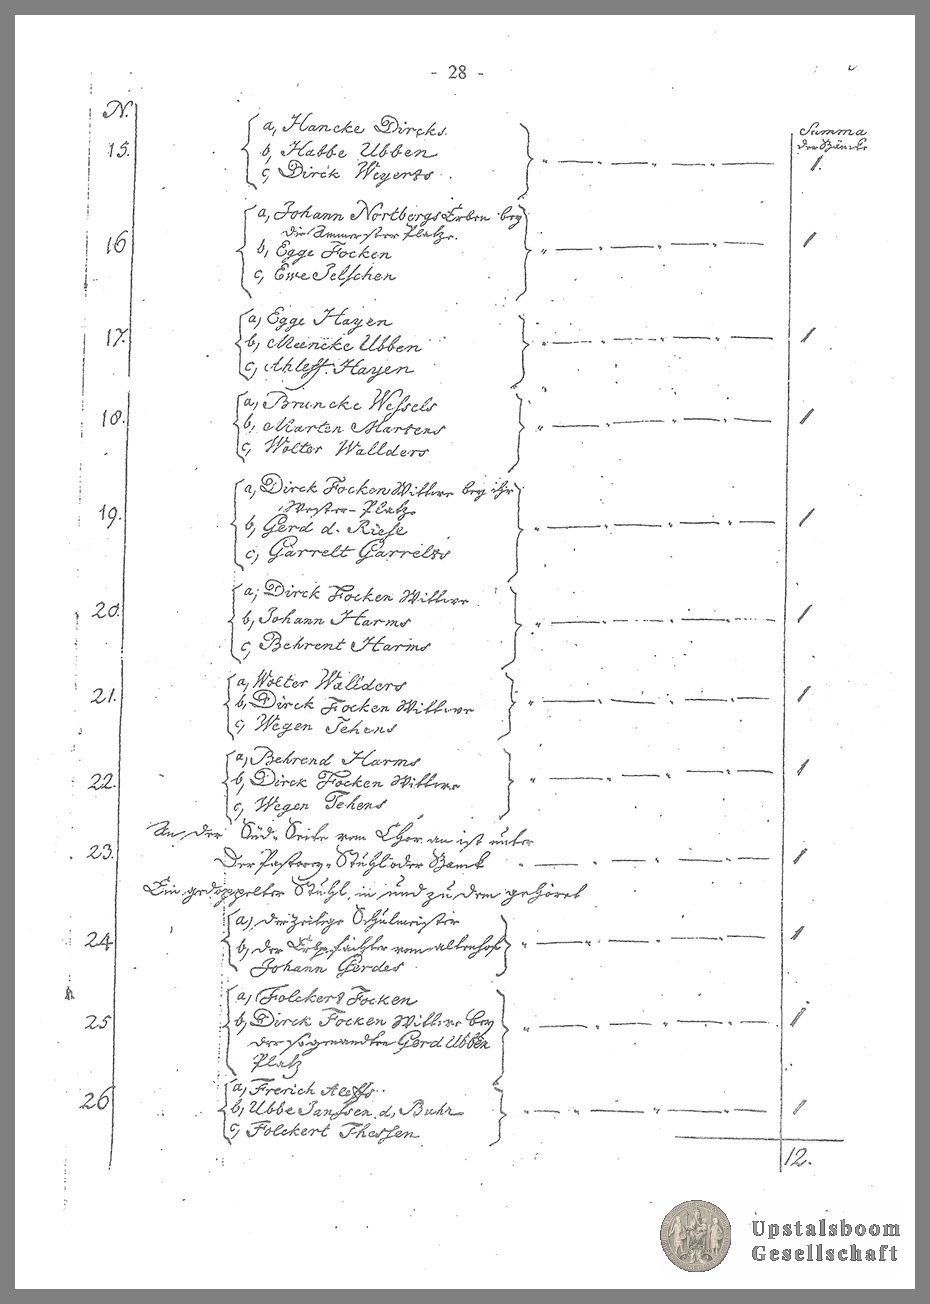 - 28 -
N.
Summa
der Bäncke
15. a, Hancke Dircks.
b, Habbe Ubben
c, Dirck Weyerts. 1.
16 a, Johann Nortbergs Erben bey
die Ammerster Platze.
b, Egge Focken
c, Ewe Jelschen 1
17. a, Egge Hayen
b, Meencke Ubben
c, Ahleff Hayen 1
18. a, Bruncke Wessels
b, Marten Martens
c, Wolter Wallders 1
19. a, Dirck Focken Wittwe bey ihr
Wester-Platze
b, Gerd d. Riese
c, Garrelt Garrelts 1
20. a, Dirck Focken Wittwe
b, Johann Harms
c, Behrent Harms 1
21. a, Wolter Wallders
b, Dirck Focken Wittwe
c, Wegen Tehens 1
22. a, Behrend Harms
b, Dirck Focken Wittwe
c, Wegen Tehens 1
An der Süd-Seite vom Chor an ist unter
23. Der Pastorey-Stuhl oder Banck 1
Ein gedoppelter Stuhl, in und zu dem gehöret
24 a, der zeitige Schulmeister
b, der Erbpächter vom altenhof
Johann Gerdes 1
25 a, Folckert Focken
b, Dirck Focken Wittwe bey
der sogenandten Gerd Ubben
Platz 1
26 a, Frerich
b, Ubbe Janssen d. Buhr
c, Folckert Thessen 1
12.
Upstalsboom
Gesellschaft